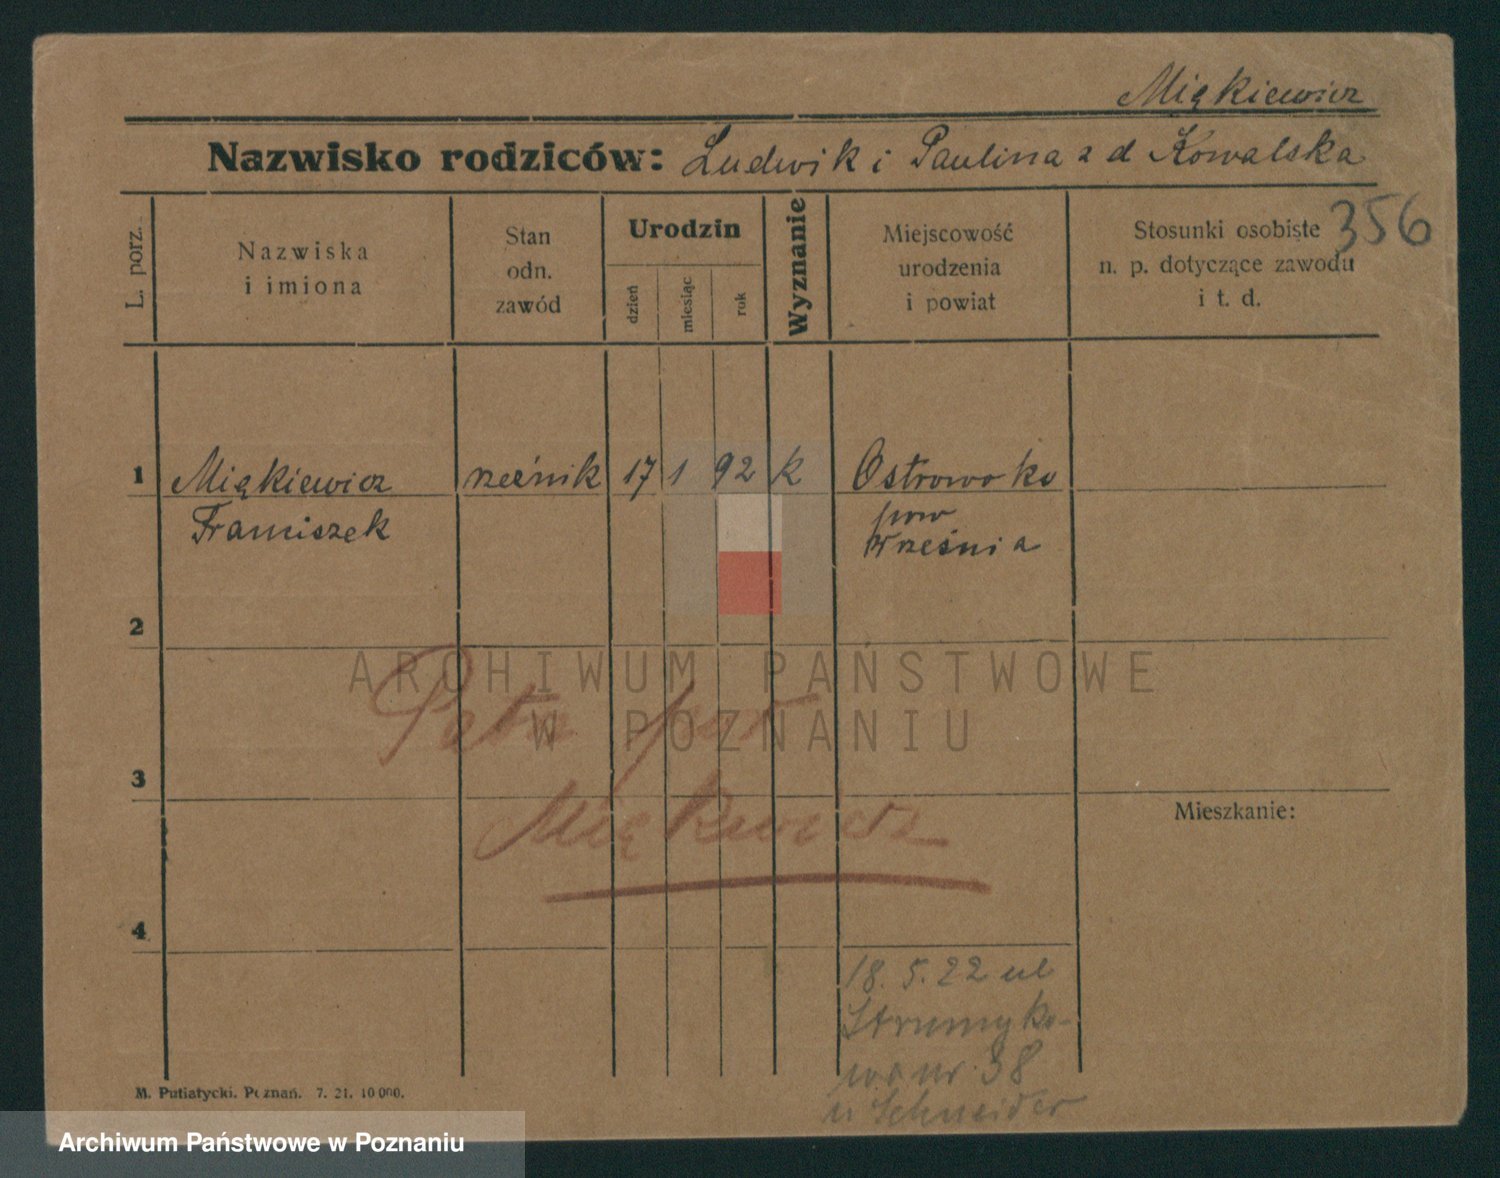 Miękiewicz
Nazwisko rodziców: Ludwik i Paulina z d Kowalska
356
L. porz.
Nazwiska
i imiona
Stan
odn.
zawód
Urodzin
dzień
miesiąc
rok
Wyznanie
Miejscowość
urodzenia
i powiat
Stosunki osobiste
n. p. dotyczące zawodu
i t. d.
1 Miękiewicz rzeźnik 17 1 92 k Ostrowo ko
Franciszek pow
Września
2
ARCHIWUM PAŃSTWOWE
W POZNANIU
Patr
3
Miękiewicz
Mieszkanie:
4
18. 5. 22 ul
Strumyko-
wa nr. 38
u Schneider
M. Putiatycki. Poznań. 7. 21. 10 000.
Archiwum Państwowe w Poznaniu